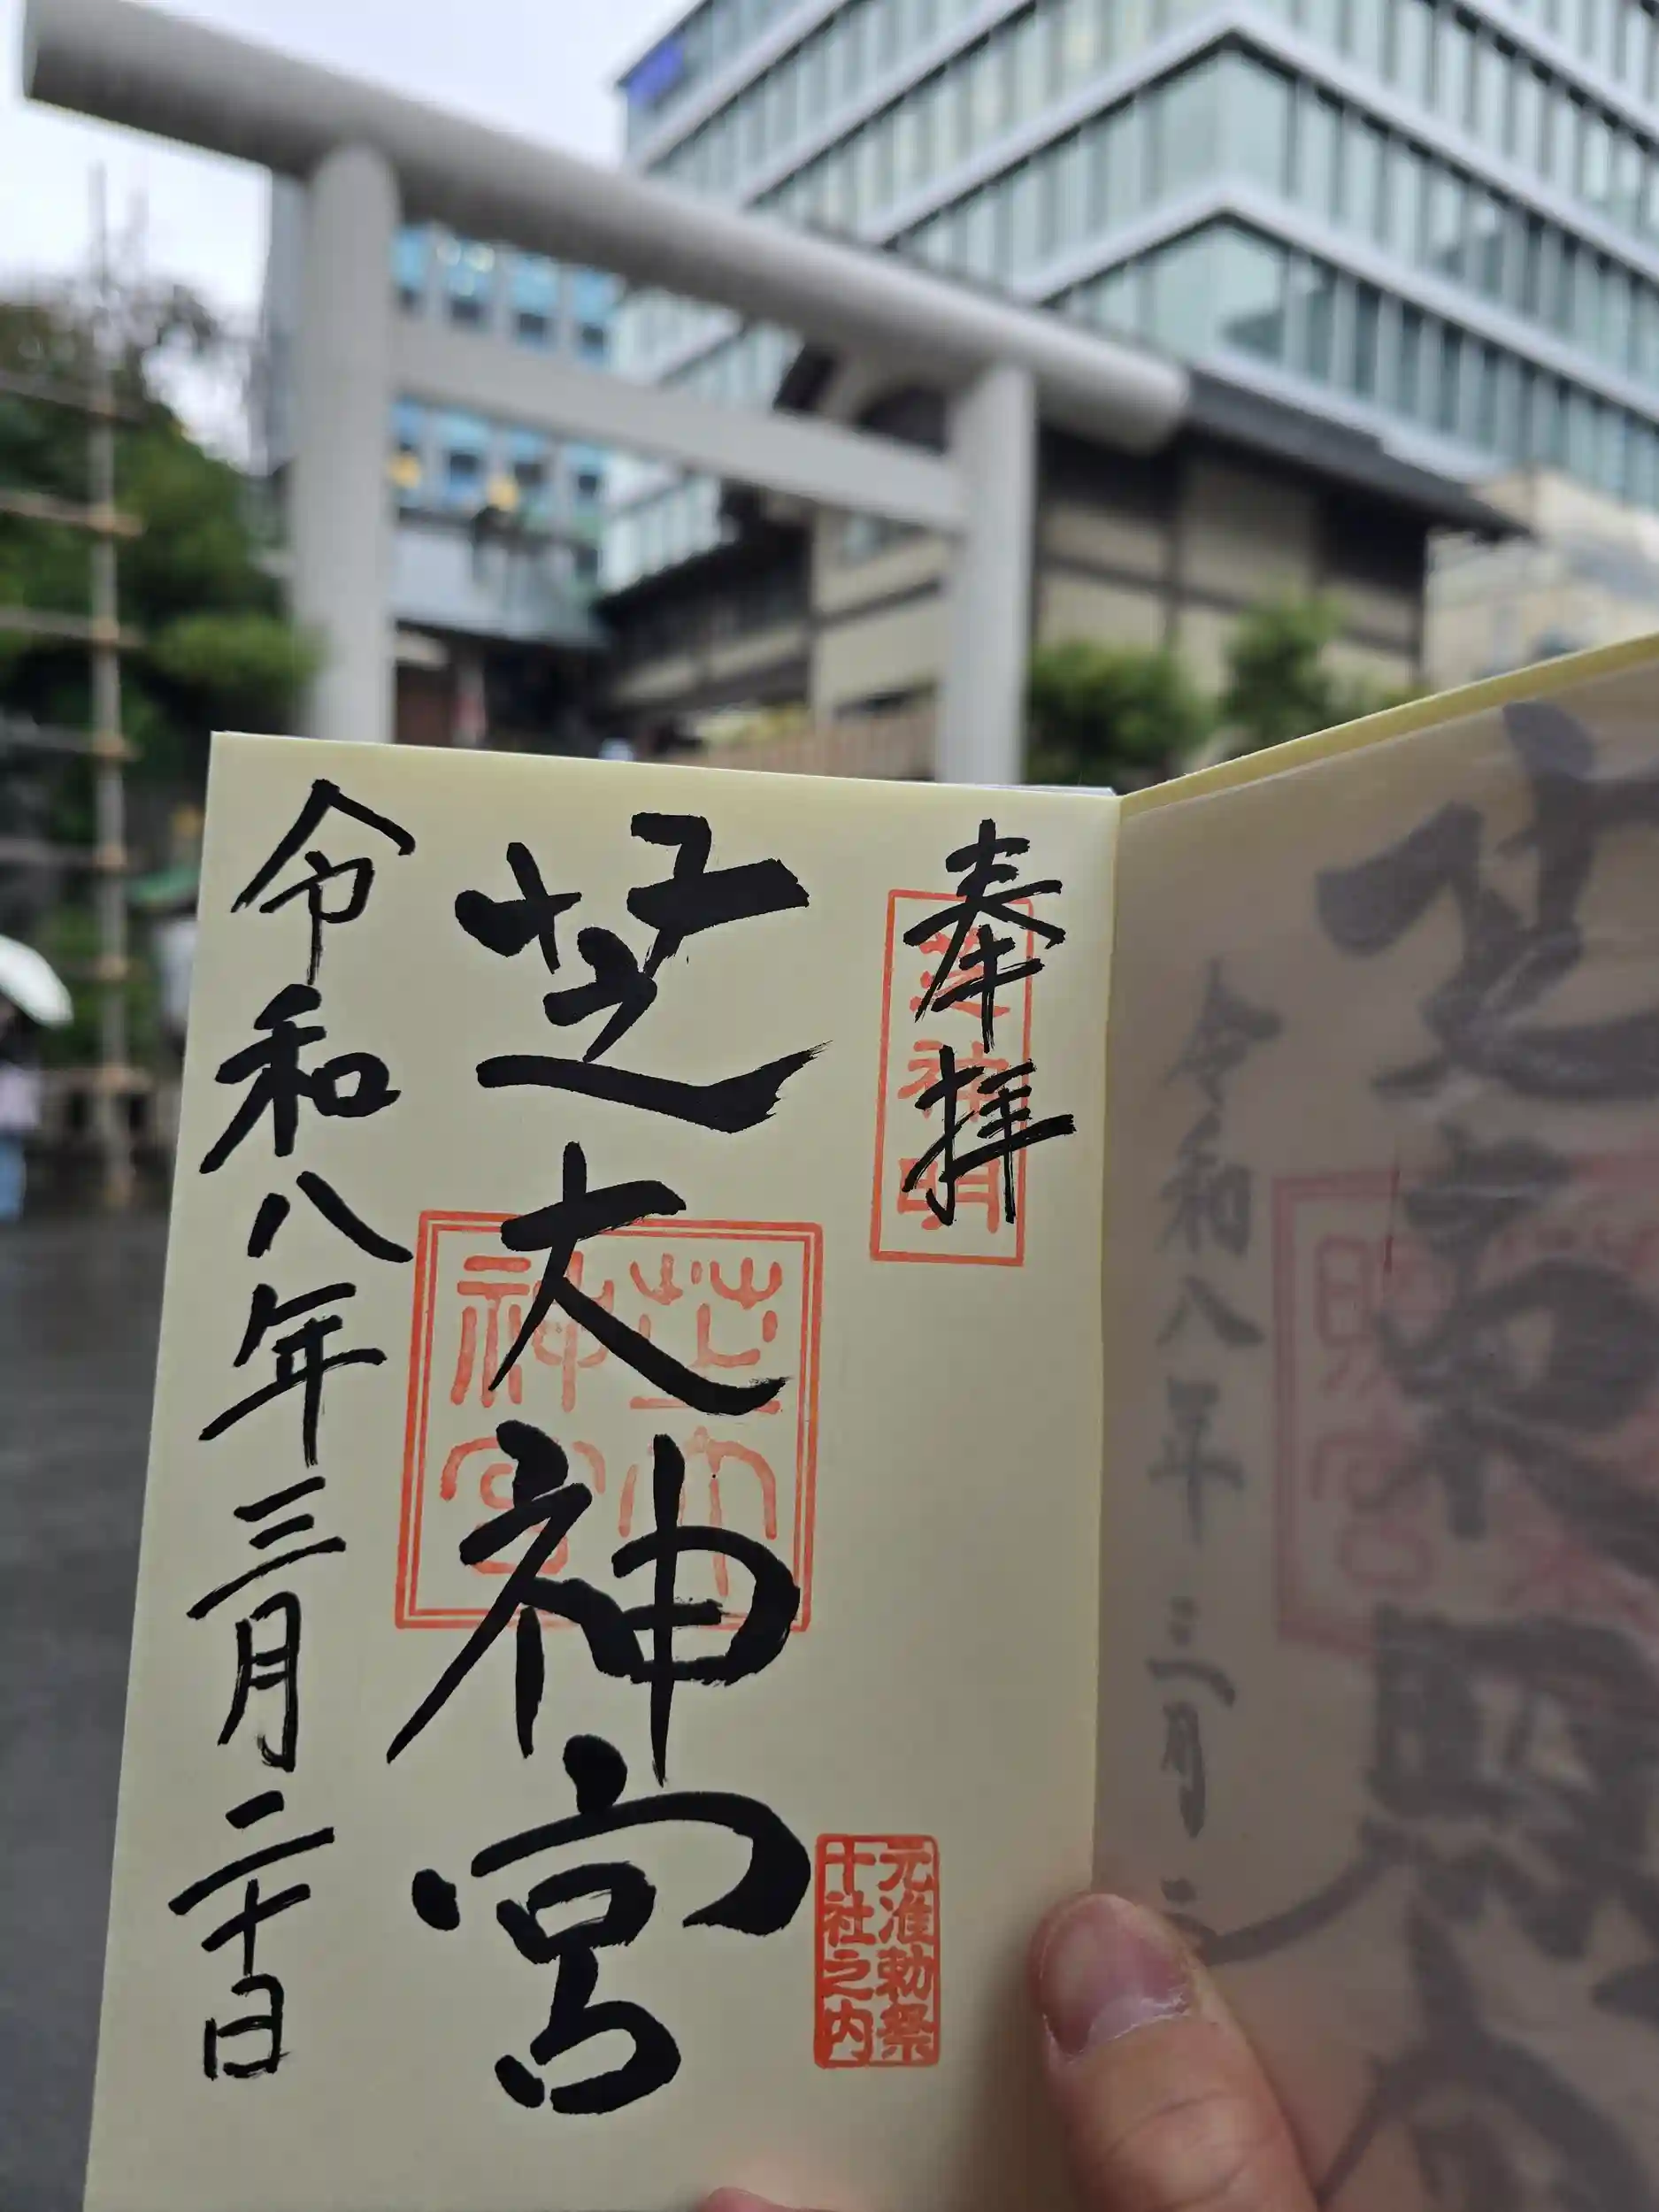 奉拝
芝神明
芝大神宮
芝大神宮
元准勅祭
十社之内
令和八年三月二十日
令和八年三月二